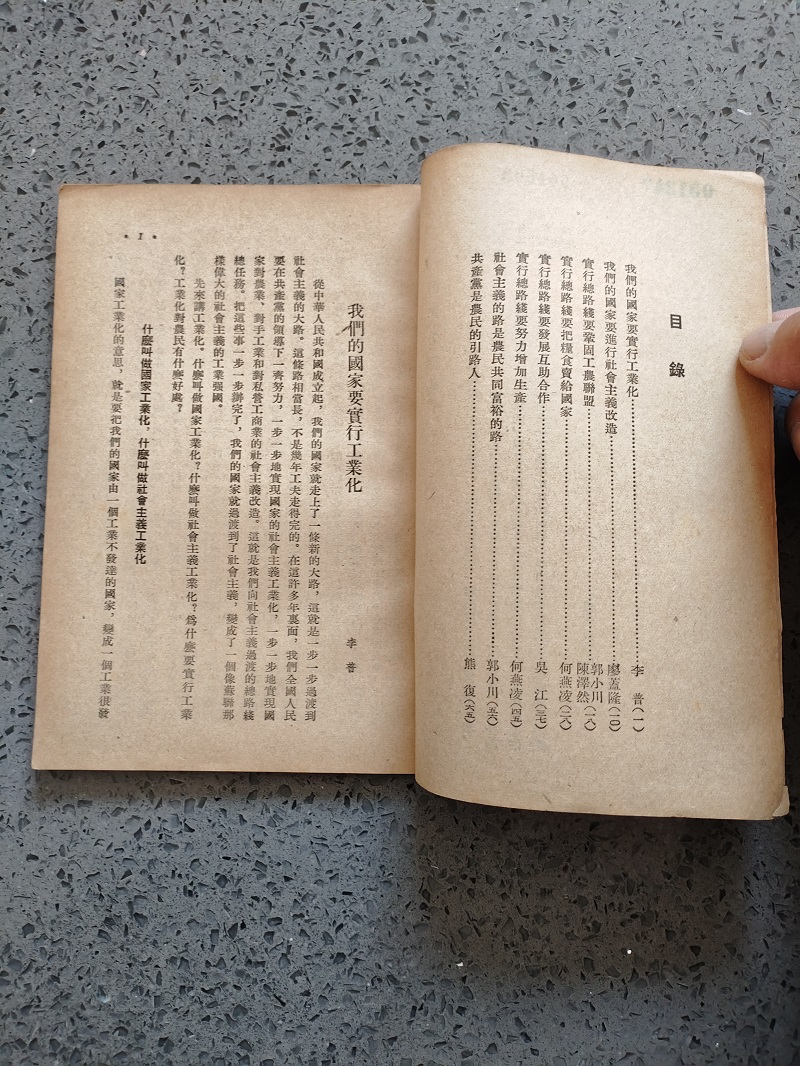 目錄
我們的國家要實行工業化……李　普(一)
我們的國家要進行社會主義改造……廖蓋隆(一〇)
實行總路綫要鞏固工農聯盟……郭小川 陳澤然(一八)
實行總路綫要把糧食賣給國家……何燕凌(二八)
實行總路綫要發展互助合作……吳　江(三七)
實行總路綫要努力增加生產……何燕凌(四五)
社會主義的路是農民共同富裕的路……郭小川(五六)
共產黨是農民的引路人……熊　復(六五)
我們的國家要實行工業化
李　普
從中華人民共和國成立起，我們的國家就走上了一條新的大路，這就是一步一步過渡到
社會主義的大路。這條路相當長，不是幾年工夫走得完的。在這許多年裏面，我們全國人民
要在共產黨的領導下一齊努力，一步一步地實現國家的社會主義工業化，一步一步地實現國
家對農業、對手工業和對私營工商業的社會主義改造。這就是我們向社會主義過渡的總路綫
總任務。把這些事一步一步辦完了，我們的國家就過渡到了社會主義，變成了一個像蘇聯那
樣偉大的社會主義的工業强國。
先來講工業化。什麼叫做國家工業化？什麼叫做社會主義工業化？爲什麼要實行工業
化？工業化對農民有什麼好處？
什麼叫做國家工業化，什麼叫做社會主義工業化
國家工業化的意思，就是要把我們的國家由一個工業不發達的國家，變成一個工業很發
• 1 •